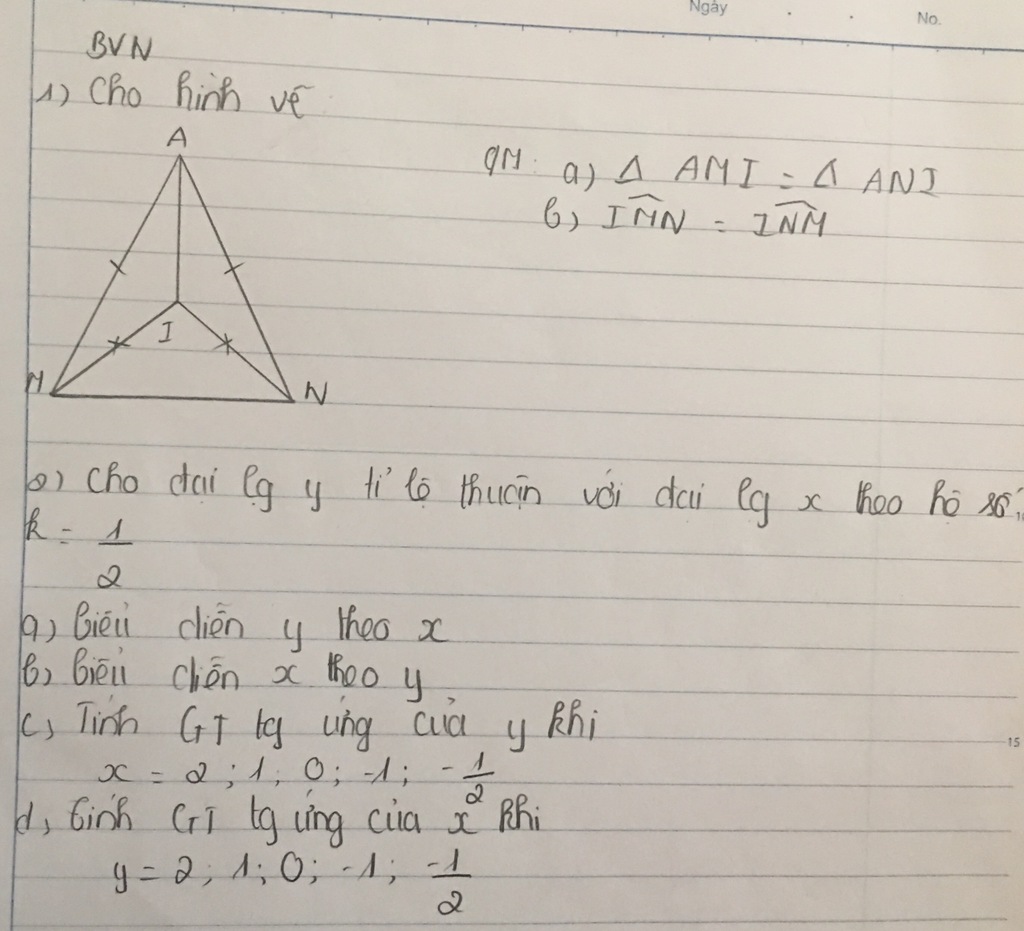 Ngày
No.
BVN
1) Cho hình vẽ
A
CM: a) Δ AMI = Δ ANI
b) IMN = INM
I
M
N
2) Cho đại lg y tỉ lệ thuận với đại lg x theo hệ số
k = 1/2
a) Biểu diễn y theo x
b) Biểu diễn x theo y
c) Tính GT tg ứng của y khi
15
x = 2 ; 1 ; 0 ; -1 ; -1/2
d) tính GT tg ứng của x khi
y = 2 ; 1 ; 0 ; -1 ; -1/2